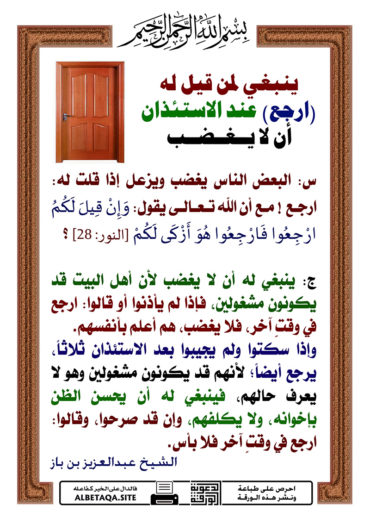 بسم الله الرحمن الرحيم
ينبغي لمن قيل له
(ارجع) عند الاستئذان
أن لا يـغـضـــب
س: البعض الناس يغضب ويزعل إذا قلت له:
ارجـع ! مـع أن الله تـعـالـى يقول: وَإِنْ قِيلَ لَكُمُ
ارْجِعُوا فَارْجِعُوا هُوَ أَزْكَى لَكُمْ [النور: 28] ؟
ج: ينبغي له أن لا يغضب لأن أهل البيت قد
يكونون مشغولين، فإذا لم يأذنوا أو قالوا: ارجع
في وقت آخر، فلا يغضب، هم أعلم بأنفسهم.
وإذا سكتوا ولم يجيبوا بعد الاستئذان ثلاثاً،
يرجع أيضاً؛ لأنهم قد يكونون مشغولين وهو لا
يعرف حالهم، فينبغي له أن يحسن الظن
بإخوانه، ولا يكلفهم، وإن قد صرحوا، وقالوا:
ارجع في وقتٍ آخر فلا بأس.
الشيخ عبدالعزيز بن باز
احرص على طباعة
ونشر هذه الورقة
فالدال على الخير كفاعله
ALBETAQA.SITE